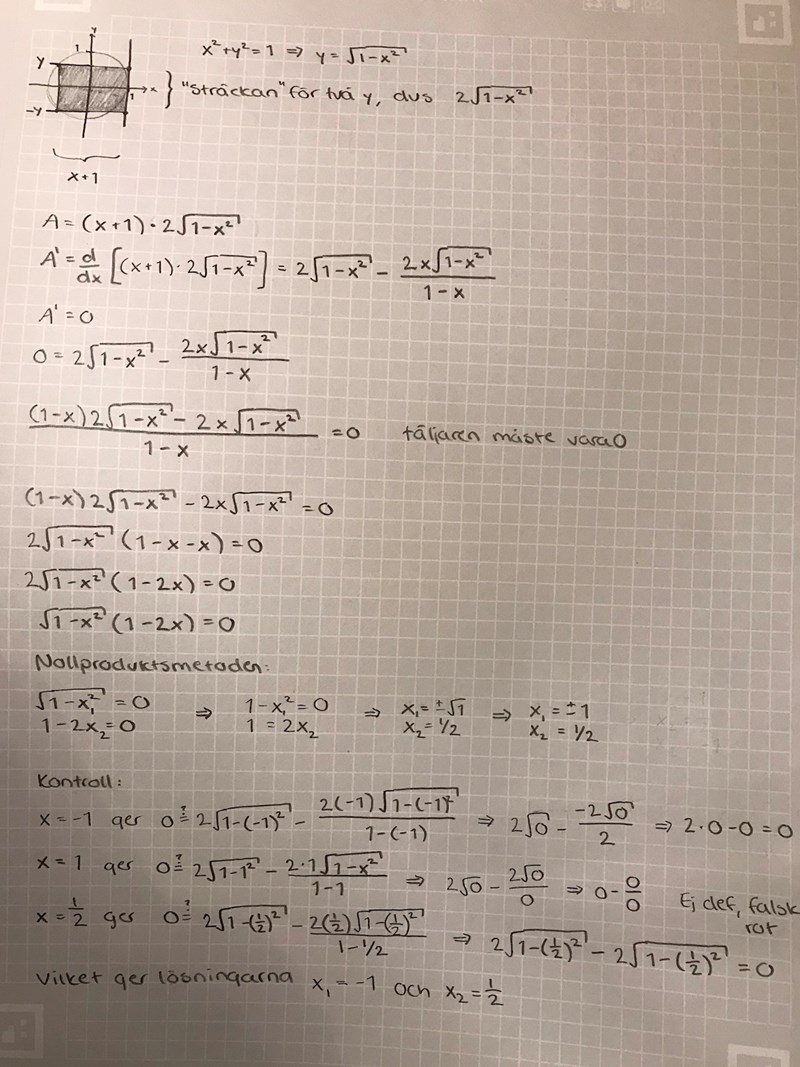 y
1
x² + y² = 1 ⇒ y = √(1-x²)
y
1
x
} "sträckan" för två y, dvs 2√(1-x²)
-y
x+1
A = (x+1) · 2√(1-x²)
A' = d/dx [(x+1) · 2√(1-x²)] = 2√(1-x²) - (2x√(1-x²))/(1-x)
A' = 0
0 = 2√(1-x²) - (2x√(1-x²))/(1-x)
((1-x)2√(1-x²) - 2x√(1-x²))/(1-x) = 0 täljaren måste vara 0
(1-x)2√(1-x²) - 2x√(1-x²) = 0
2√(1-x²) (1-x-x) = 0
2√(1-x²) (1-2x) = 0
√(1-x²) (1-2x) = 0
Nollproduktsmetoden:
√(1-x₁²) = 0 ⇒ 1-x₁² = 0 ⇒ x₁ = ±√1 ⇒ x₁ = ±1
1-2x₂ = 0 1 = 2x₂ x₂ = 1/2 x₂ = 1/2
Kontroll:
x = -1 ger 0 ≟ 2√(1-(-1)²) - (2(-1)√(1-(-1)²))/(1-(-1)) ⇒ 2√0 - (-2√0)/2 ⇒ 2·0-0 = 0
x = 1 ger 0 ≟ 2√(1-1²) - (2·1√(1-x²))/(1-1) ⇒ 2√0 - (2√0)/0 ⇒ 0 - 0/0 Ej def, falsk rot
x = 1/2 ger 0 ≟ 2√(1-(1/2)²) - (2(1/2)√(1-(1/2)²))/(1-1/2) ⇒ 2√(1-(1/2)²) - 2√(1-(1/2)²) = 0
Vilket ger lösningarna x₁ = -1 och x₂ = 1/2